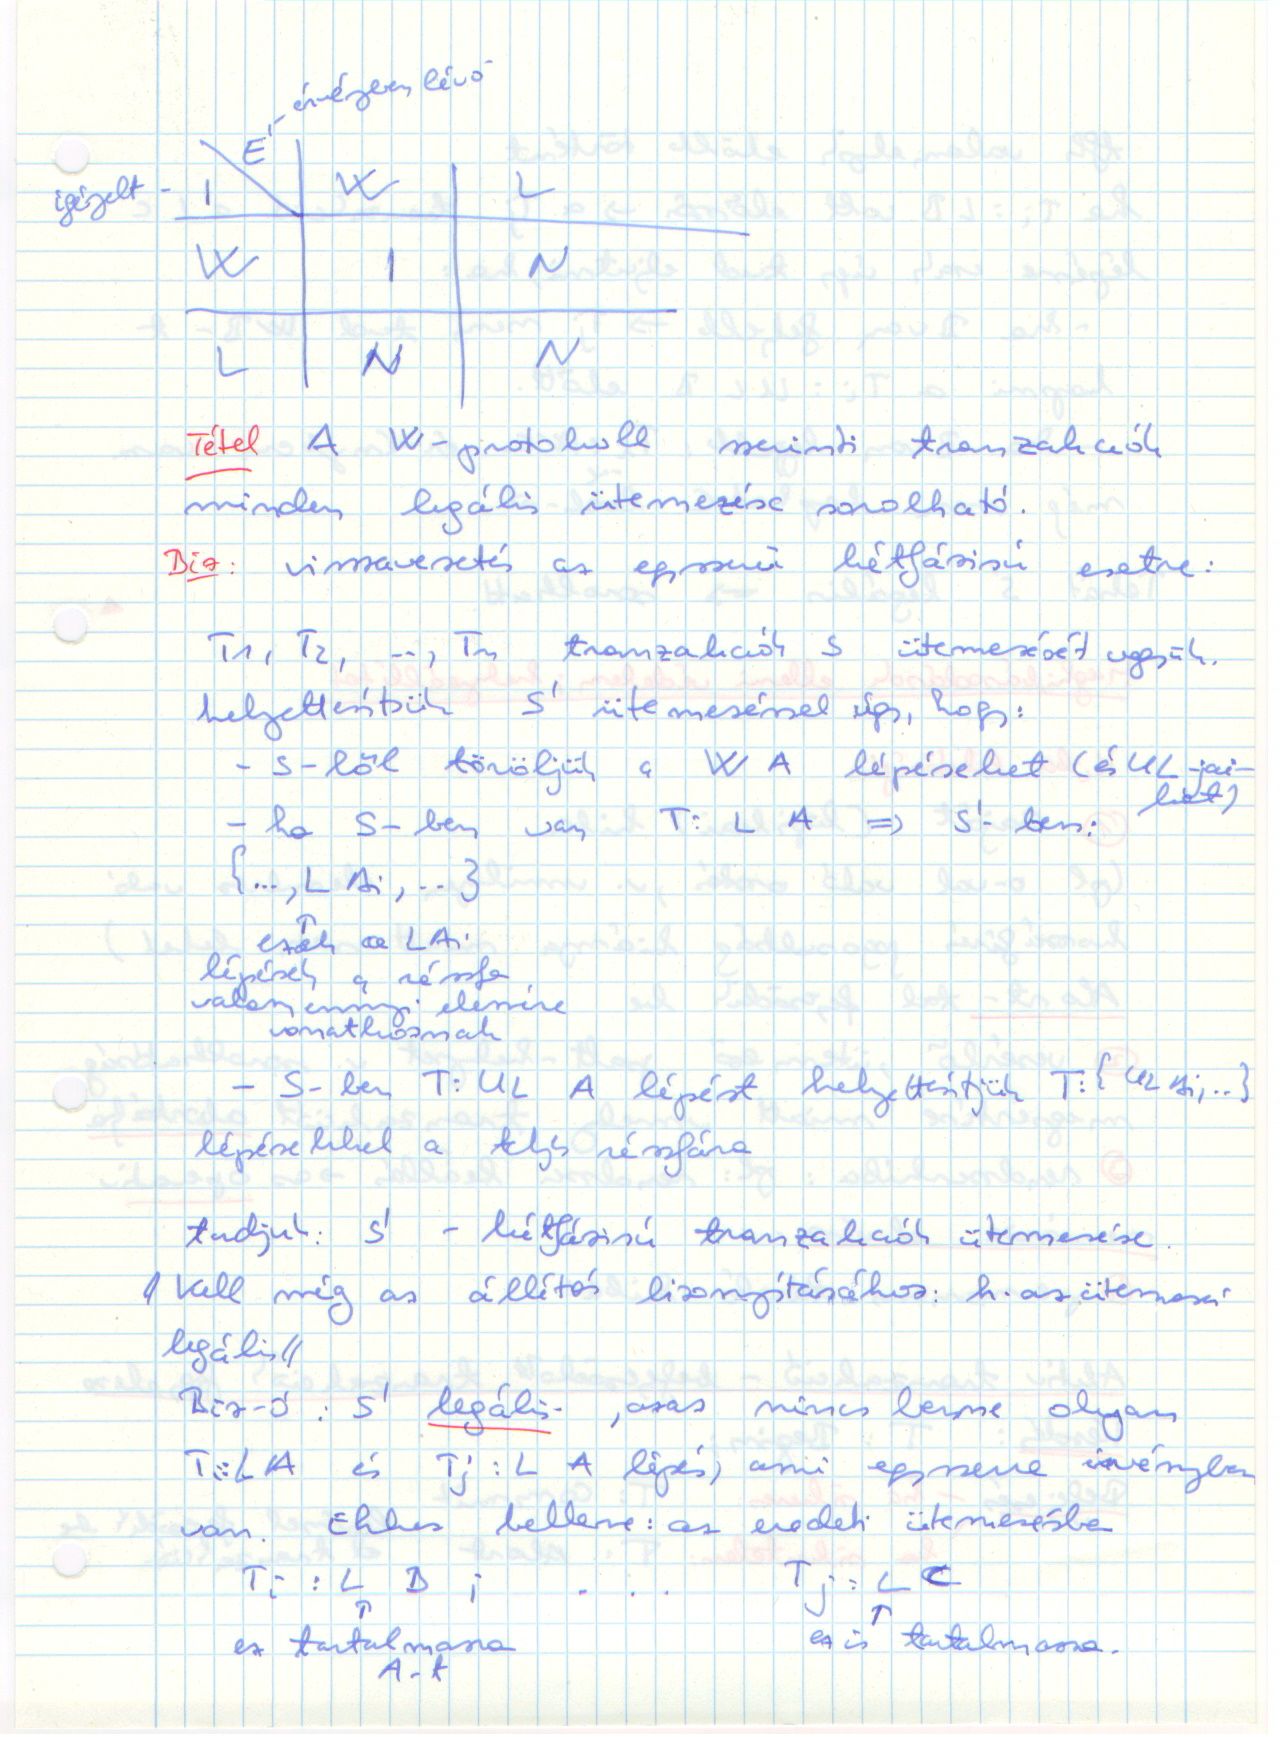 érvényben lévő
E
igényelt - I W L
W I N
L N N
Tétel A W-protokoll szerinti tranzakciók
minden legális ütemezése sorolható.
Biz: visszavezetés az egyszerű kétfázisú esetre:
T1, T2, ..., Tn tranzakciók S ütemezését vegyük.
helyettesítsük S' ütemezéssel úgy, hogy:
- S-ből töröljük a W A lépéseket (és UL-jai-
kat)
- ha S-ben van T: L A => S'-ben:
{..., L Ai, ...}
ezek a LAi
lépések a részfa
valamennyi elemére
vonatkoznak
- S-ben T: UL A lépést helyettesítjük T: { UL Ai, ..}
lépésekkel a teljs részfára
tudjuk: S' - kétfázisú tranzakciók ütemezése.
// Kell még az állítás bizonyításához: h. az ütemezés
legális //
Biz-ó: S' legális, azaz nincs benne olyan
Ti: L A és Tj: L A lépés, ami egyszerre érvényben
van. Ehhez kellene: az eredeti ütemezésbe
Ti: L B ; . . . Tj: L C
ez tartalmazza ez is tartalmazza.
A-t